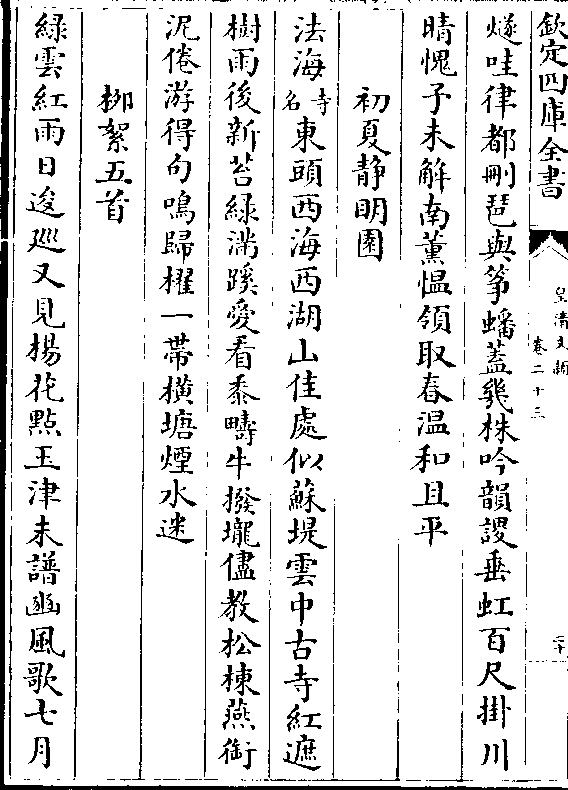 欽定四庫全書
皇清文穎
卷二十三
二十
燧哇律都刪琶與筝蟠蓋幾株吟韻謖垂虹百尺掛川
晴愧子未解南薰愠領取春温和且平
初夏静明園
法海寺名東頭西海西湖山佳處似蘇堤雲中古寺紅遮
樹雨後新苔緑滿蹊愛看黍疇牛撥壠儘教松棟燕銜
泥倦游得句鳴歸櫂一帶横塘煙水迷
柳絮五首
緑雲紅雨日逡廵又見楊花點玉津未譜豳風歌七月